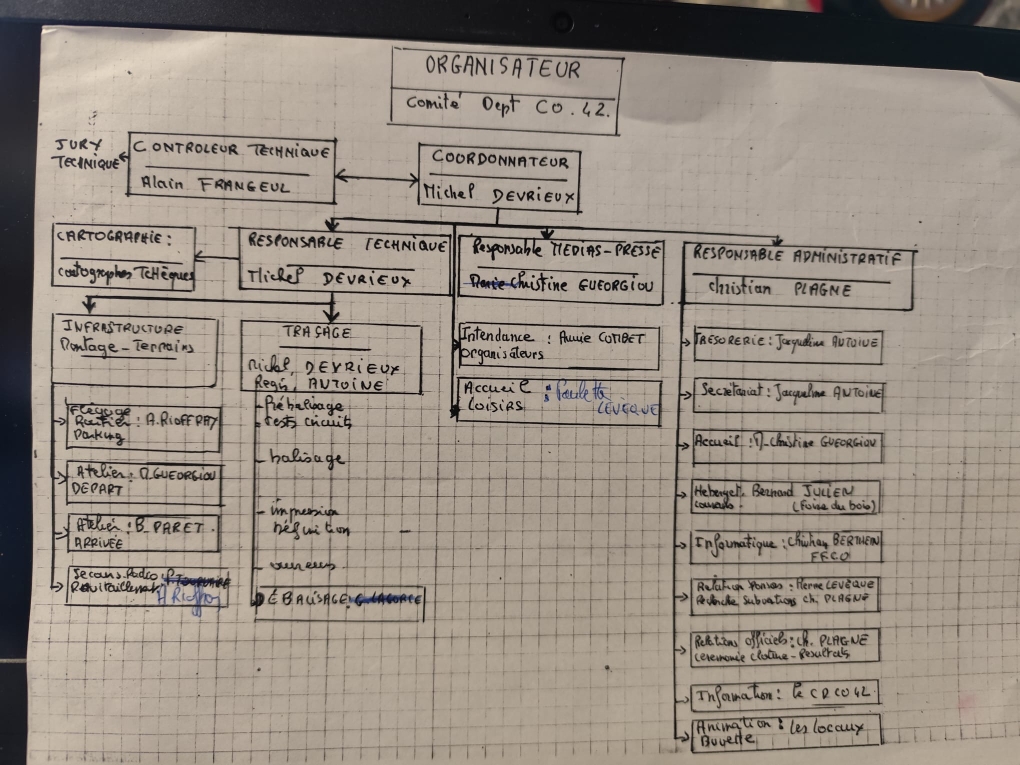 ORGANISATEUR
Comité Dept CO.42.
JURY
TECHNIQUE
CONTROLEUR TECHNIQUE
Alain FRANGEUL
COORDONNATEUR
Michel DEVRIEUX
CARTOGRAPHIE :
cartographes TCHèques
RESPONSABLE TECHNIQUE
Michel DEVRIEUX
Responsable MEDIAS-PRESSE
Marie-Christine GUEORGIOU
RESPONSABLE ADMINISTRATIF
christian PLAGNE
INFRASTRUCTURE
Montage-Terrains
Fléçage
Routier : A.RIOFFRAY
Parking
Atelier : M.GUEORGIOU
DEPART
Atelier : B. PARET.
ARRIVÉE
Secours.Radio :
Ravitaillement
TRAÇAGE
Michel, DEVRIEUX
Regis, ANTOINE
- Prébalisage
- Tests circuits
- balisage
- impression
Définition -
DÉBALISAGE : G LAGORCE
Intendance : Annie COMBET
organisateurs
Accueil : Paulette
Loisirs LEVEQUE
TRESORERIE : Jacqueline ANTOINE
Secretariat : Jacqueline ANTOINE
Accueil : M-Christine GUEORGIOU
Heberget. Bernard JULIEN
(Foire du bois)
Informatique : BERTHEIN
FFCO
Relation : Pierre LEVÈQUE
Recherche subvations ch. PLAGNE
Relations officiels : ch. PLAGNE
ceremonie cloture-Resultats
Information : le CDCO42
Animation : Les Locaux
Buvette